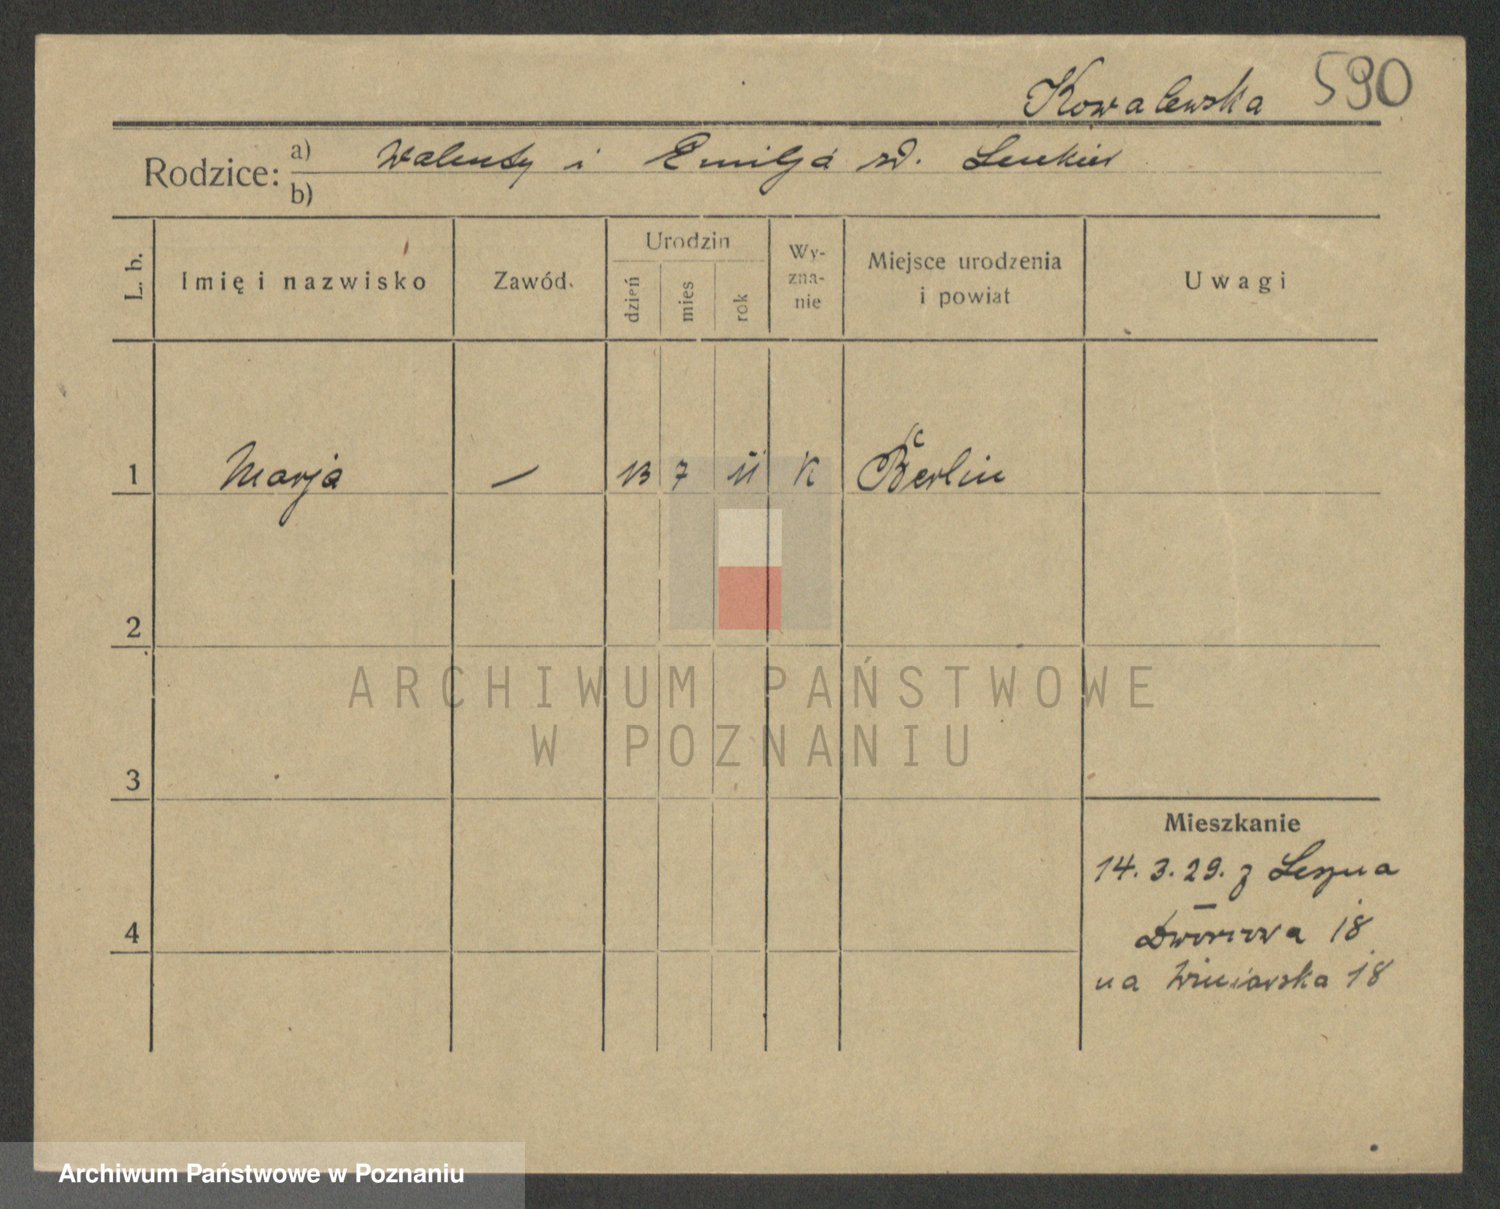 Kowalewska 590
Rodzice: a) Walenty i Emilja
b)
L. b. Imię i nazwisko Zawód. Urodzin dzień mies rok Wy-zna-nie Miejsce urodzenia i powiat Uwagi
1 Marja — 13 7 11 K Berlin
2
3
4
Mieszkanie
14. 3. 29. z Leszna
Dworcowa 18
na Winiarska 18
ARCHIWUM PAŃSTWOWE
W POZNANIU
Archiwum Państwowe w Poznaniu